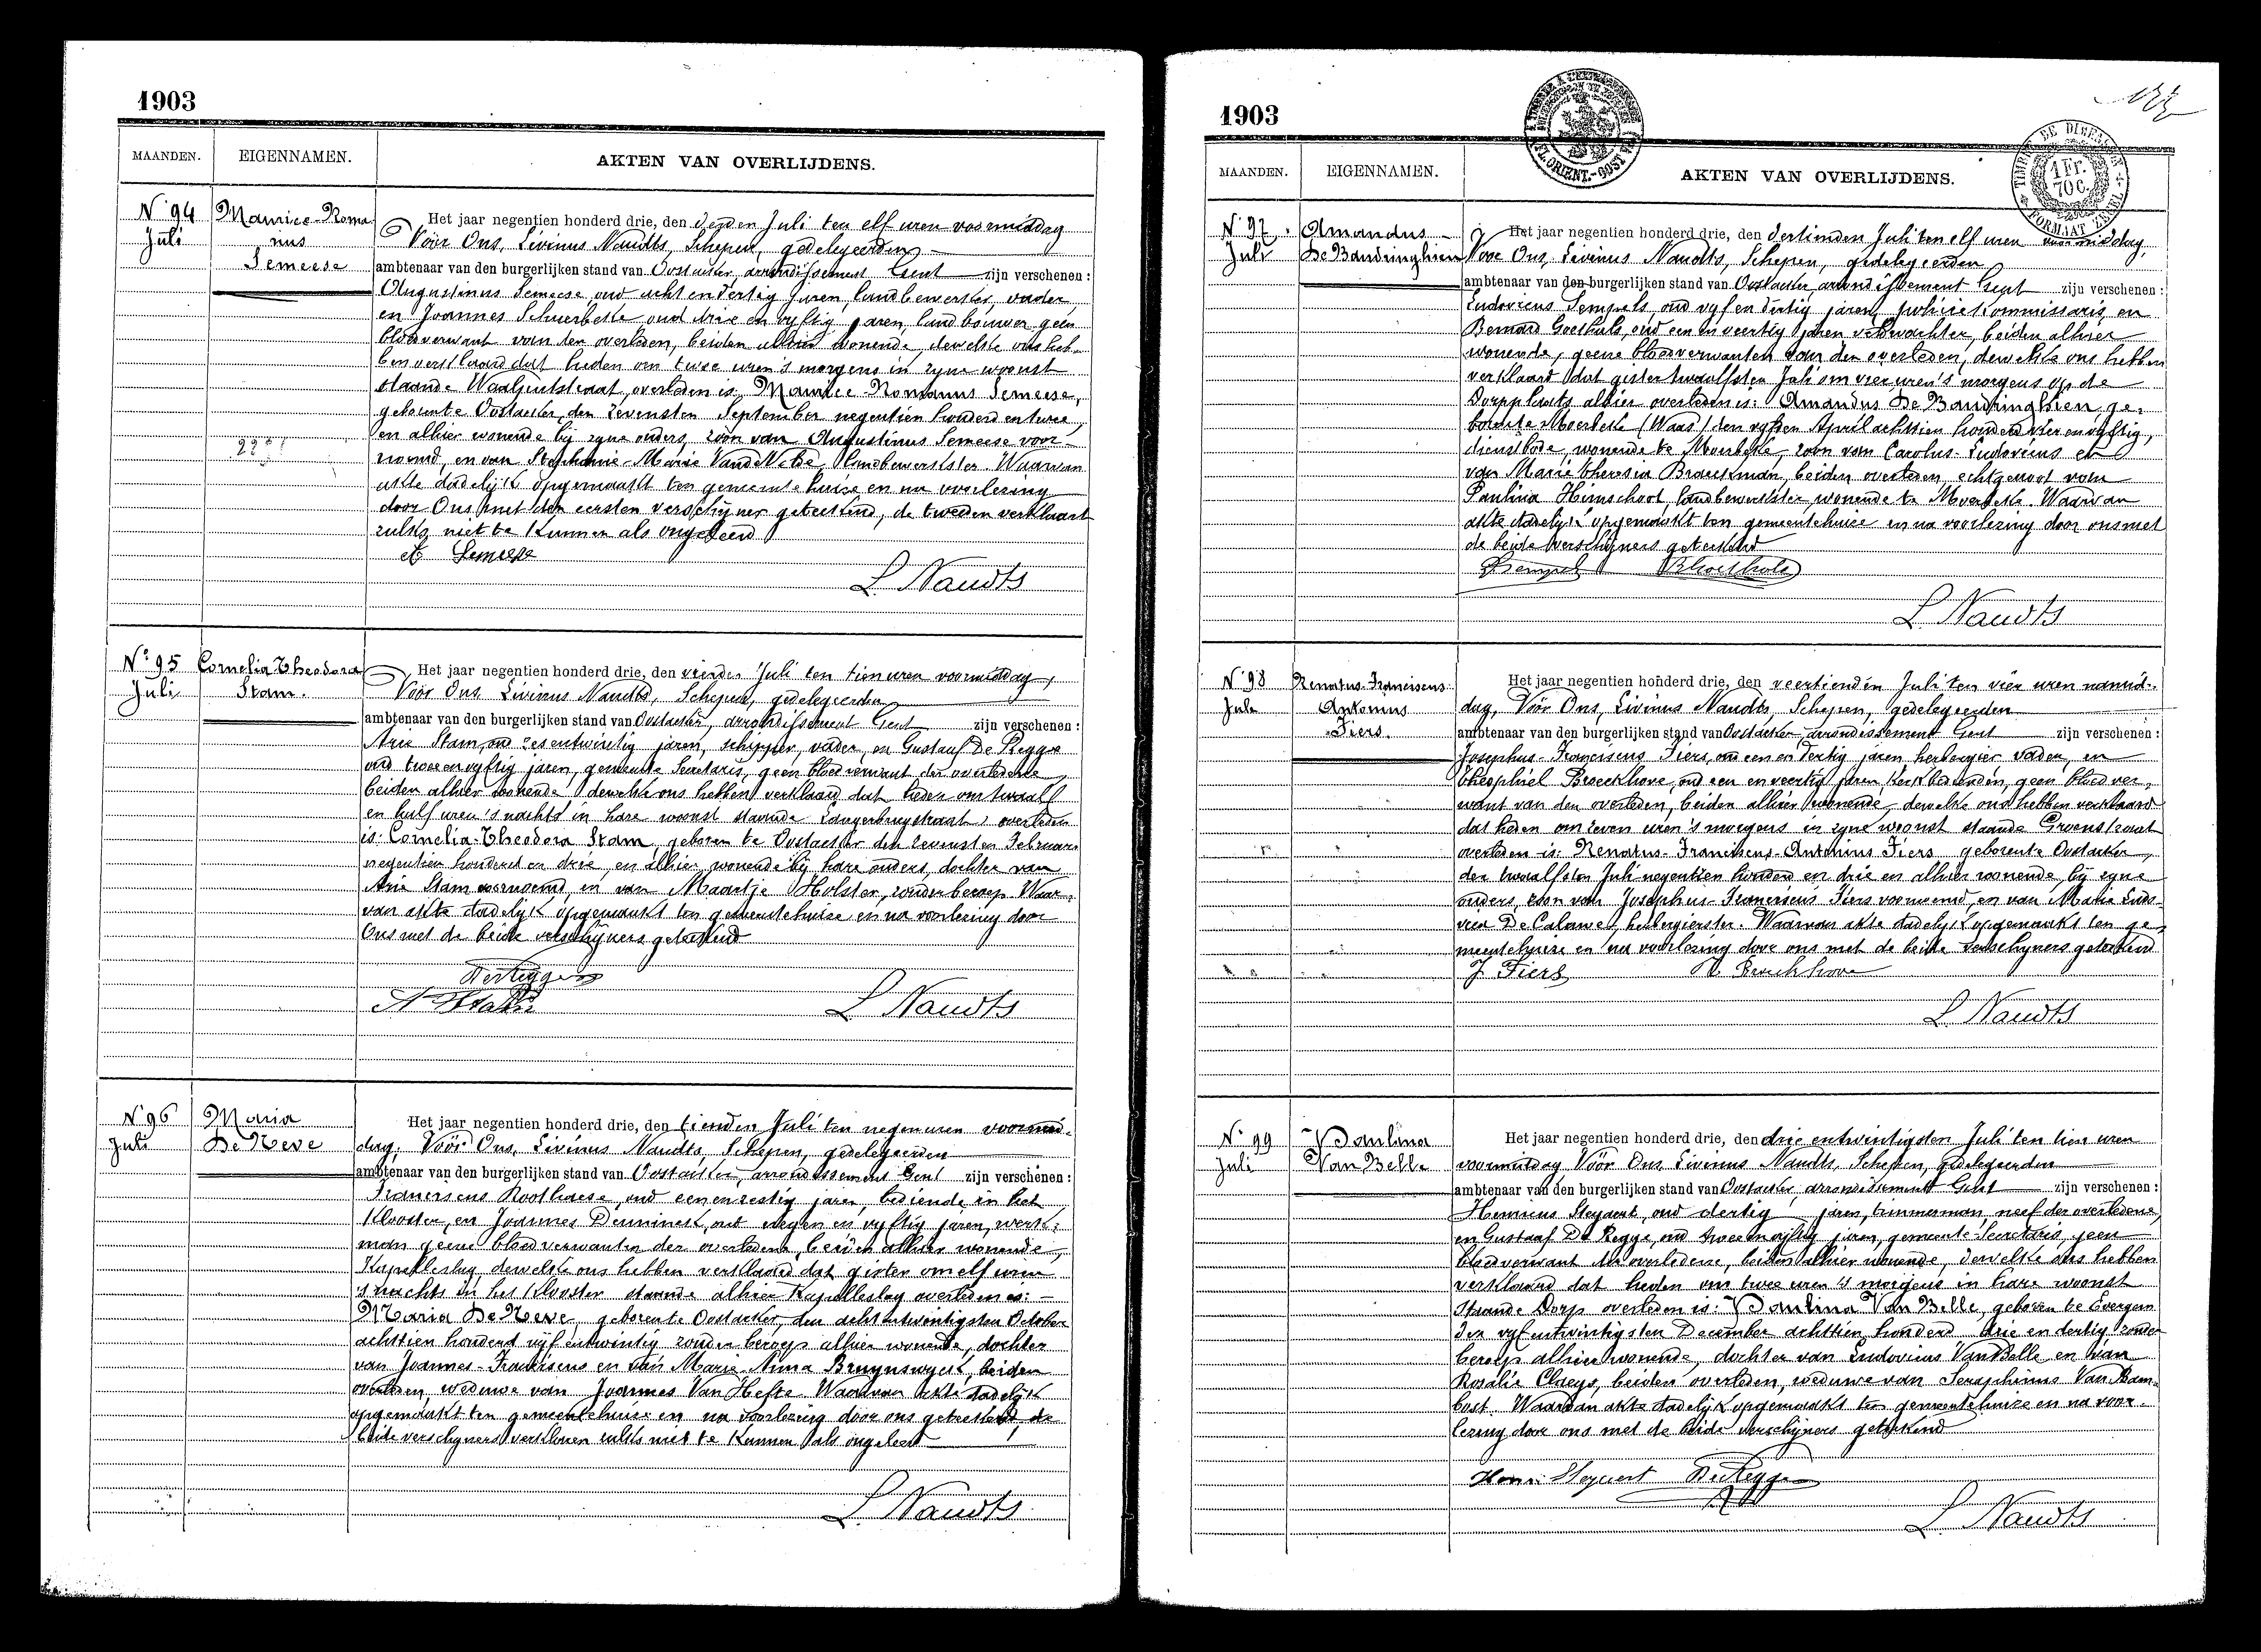 1903
MAANDEN. EIGENNAMEN. AKTEN VAN OVERLIJDENS.
N° 94 Maurice-Roma
Juli nus
Semeese
Het jaar negentien honderd drie, den derden Juli ten elf uren voormiddag
Vóór Ons, Livinus Naudts, Schepen, gedelegeerden
ambtenaar van den burgerlijken stand van Oostacker, arrondissement Gent zijn verschenen:
Augustinus Semeese, oud acht en dertig jaren, landbewerker, vader
en Joannes Scheerbelle oud drie en vyftig jaren, landbouwer geen
bloedverwant van den overleden, beiden alhier wonende, dewelke ons heb-
ben verklaard dat heden om twee uren 's morgens in zyne woonst
staande Waalputstraat, overleden is: Maurice Romanus Semeese,
geboren te Oostacker, den zevensten September negentien honderd en twee,
en alhier wonende by zyne ouders, zoon van Augustinus Semeese voor-
noemd, en van Stephanie-Marie Van de Velde, landbewerkster. Waarvan
akte dadelijk opgemaakt ten gemeentehuize en na voorlezing
door Ons met den eersten verschijner geteekend, de tweeden verklaart
zulks niet te kunnen als ongeleerd
A Semeese
L. Naudts
N° 95 Cornelia Theodora
Juli Stam.
Het jaar negentien honderd drie, den vierden Juli ten tien uren voormiddag,
Vóór Ons, Livinus Naudts, Schepen, gedelegeerden
ambtenaar van den burgerlijken stand van Oostacker, arrondissement Gent zijn verschenen:
Arie Stam, oud zes entwintig jaren, schipper, vader, en Gustaaf De Regge
oud twee en vyftig jaren, gemeente Secretaris, geen bloedverwant der overledene,
beiden alhier wonende dewelke ons hebben verklaard dat heden om twaalf
en half uren 's nachts in hare woonst staande Langerbrugstraat, overleden
is: Cornelia-Theodora Stam, geboren te Oostacker den zevensten Februari
negentien honderd en drie, en alhier wonende bij hare ouders, dochter van
Arie Stam voornoemd, en van Maartje Holster, zonder beroep. Waar-
van akte dadelyk opgemaakt ten gemeentehuize en na voorlezing door
Ons met de beide verschijners geteekend
DeRegge
A Stam
L. Naudts
N° 96 Maria
Juli De Neve
Het jaar negentien honderd drie, den tienden Juli ten negen uren voormid-
dag, Vóór Ons, Livinus Naudts, Schepen, gedelegeerden
ambtenaar van den burgerlijken stand van Oostacker, arrondissement Gent zijn verschenen:
Franciscus Roothaese, oud eenenzestig jaren, bediende in het
Klooster, en Joannes Denninck, oud negen en vyftig jaren, werk-
man geene bloedverwanten der overledene, beiden alhier wonende,
Kapelleslag, dewelke ons hebben verklaard dat gister om elf uren
's nachts in het klooster staande alhier Kapelleslag overleden is:
Maria De Neve, geboren te Oostacker, den achtentwintigsten October
achttien honderd vijf entwintig zonder beroep alhier wonende, dochter
van Joannes-Franciscus en van Marie-Anna Bruynswyck, beiden
overleden, weduwe van Joannes Van Hefte. Waarvan akte dadelyk
opgemaakt ten gemeentehuize en na voorlezing door ons geteekend, de
beide verschyners verklaren zulks niet te kunnen als ongeleerd
L. Naudts
1903
1 Fr. 70 C.
MAANDEN. EIGENNAMEN. AKTEN VAN OVERLIJDENS.
N° 97 Amandus
Juli De Bandringhien
Het jaar negentien honderd drie, den dertienden Juli ten elf uren voormiddag,
Voor Ons, Livinus Naudts, Schepen, gedelegeerden
ambtenaar van den burgerlijken stand van Oostacker arrondissement Gent zijn verschenen:
Ludovicus Sempels, oud vyf en dertig jaren, policiecommissaris, en
Bernard Goethals, oud een en veertig jaren veldwachter, beiden alhier
wonende, geene bloedverwanten van den overleden, dewelke ons hebben
verklaard dat gister twaalfsten Juli om vier uren 's morgens op de
Dorpplaats alhier overleden is: Amandus De Bandringhien, ge-
boren te Moerbeke (Waas) den vyfden April achttien honderd vier en vyftig,
dienstbode, wonende te Moerbeke, zoon van Carolus-Ludovicus en
van Marie Theresia Braeckman, beiden overleden, echtgenoot van
Paulina Himschoot, landbewerkster wonende te Moerbeke. Waarvan
akte dadelyk opgemaakt ten gemeentehuize en na voorlezing door ons met
de beide verschyners geteekend
Sempels BGoethals
L. Naudts
N° 98 Renatus-Franciscus
Juli Antonius
Fiers.
Het jaar negentien honderd drie, den veertienden Juli ten vier uren namid-
dag, Vóór Ons, Livinus Naudts, Schepen, gedelegeerden
ambtenaar van den burgerlijken stand van Oostacker arrondissement Gent zijn verschenen:
Josephus-Franciscus Fiers, oud een en dertig jaren, herbergier, vader, en
Theophiel Broeckhove, oud een en veertig jaren, kerkbediende, geen bloedver-
want van den overleden, beiden alhier wonende, dewelke ons hebben verklaard
dat heden om zeven uren 's morgens in zyne woonst staande Groenstraat
overleden is: Renatus-Franciscus-Antonius Fiers geboren te Oostacker,
den twaalfsten Juli negentien honderd en drie en alhier wonende, by zyne
ouders, zoon van Josephus-Franciscus Fiers voornoemd, en van Marie Ludo-
vica De Caluwe, herbergierster. Waarvan akte dadelyk opgemaakt ten ge-
meentehuize en na voorlezing door ons met de beide verschyners geteekend
J Fiers Th Broeckhove
L. Naudts
N° 99 Paulina
Juli Van Belle
Het jaar negentien honderd drie, den drie entwintigsten Juli ten tien uren
voormiddag Vóór Ons, Livinus Naudts, Schepen, gedelegeerden
ambtenaar van den burgerlijken stand van Oostacker, arrondissement Gent zijn verschenen:
Henricus Steyaert, oud dertig jaren, timmerman, neef der overledene,
en Gustaaf De Regge, oud twee en vyftig jaren, gemeente-Secretaris, geen
bloedverwant der overledene, beiden alhier wonende, dewelke ons hebben
verklaard dat heden om twee uren 's morgens in hare woonst
staande Dorp overleden is: Paulina Van Belle, geboren te Evergem
den vyfentwintigsten December achttien honderd drie en dertig zonder
beroep alhier wonende, dochter van Ludovicus Van Belle en van
Rosalie Claeys, beiden overleden, weduwe van Seraphinus Van Dam-
bost. Waarvan akte dadelyk opgemaakt ten gemeentehuize en na voor-
lezing door ons met de beide verschijners geteekend
Henri Steyaert DeRegge
L. Naudts